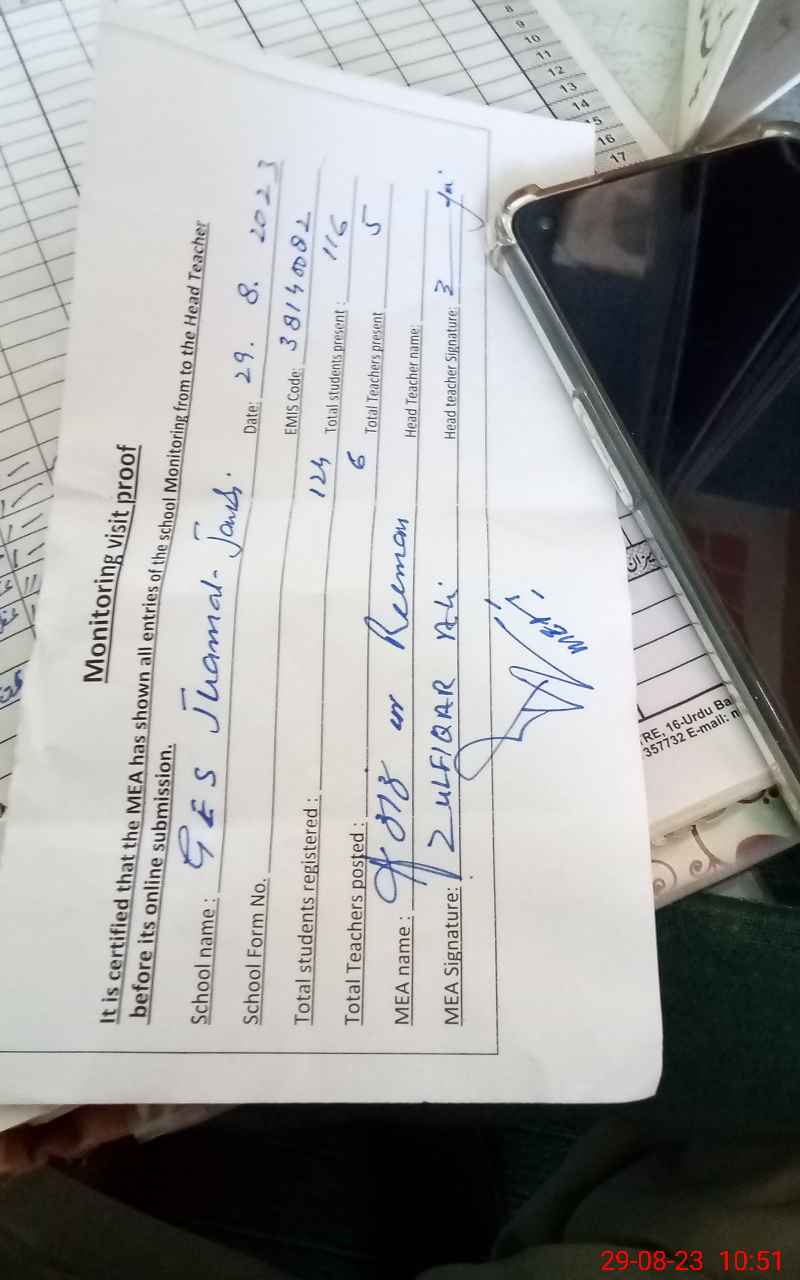 Monitoring visit proof
It is certified that the MEA has shown all entries of the school Monitoring from to the Head Teacher
before its online submission.
School name : GES Jhamat- Date: 29. 8. 2023
School Form No. EMIS Code: 38140082
Total students registered : 124 Total students present : 116
Total Teachers posted : 6 Total Teachers present 5
MEA name : ur Rehman Head Teacher name:
MEA Signature: ZULFIQAR Ali Head teacher Signature:
8
9
10
11
12
13
14
15
16
17
میزان
TRE, 16-Urdu Ba
357732 E-mail:
29-08-23 10:51